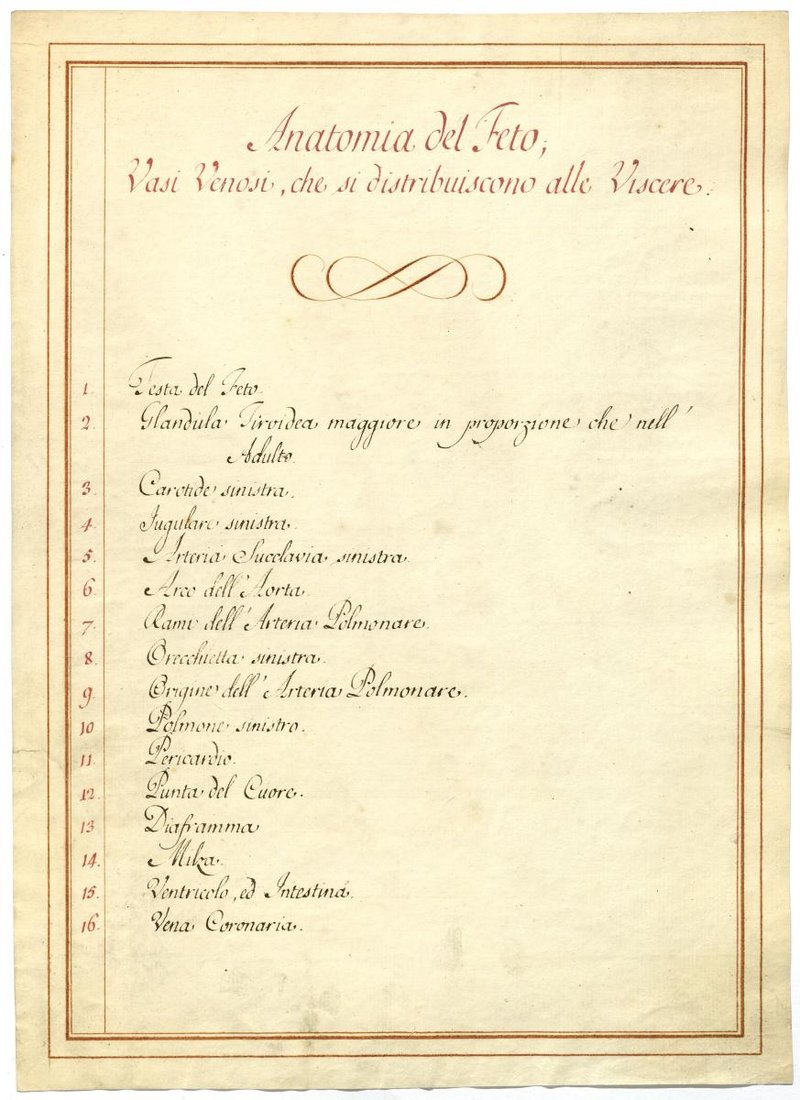 Anatomia del Feto,
Vasi Venosi, che si distribuiscono alle Viscere.
1. Testa del Feto.
2. Glandula Tiroidea maggiore in proporzione che nell'
Adulto.
3. Carotide sinistra.
4. Jugulare sinistra.
5. Arteria Succlavia sinistra.
6. Arco dell'Aorta.
7. Rami dell'Arteria Polmonare.
8. Orecchietta sinistra.
9. Origine dell'Arteria Polmonare.
10 Polmone sinistro.
11. Pericardio.
12. Punta del Cuore.
13 Diaframma
14. Milza.
15. Ventricolo, ed Intestina.
16. Vena Coronaria.